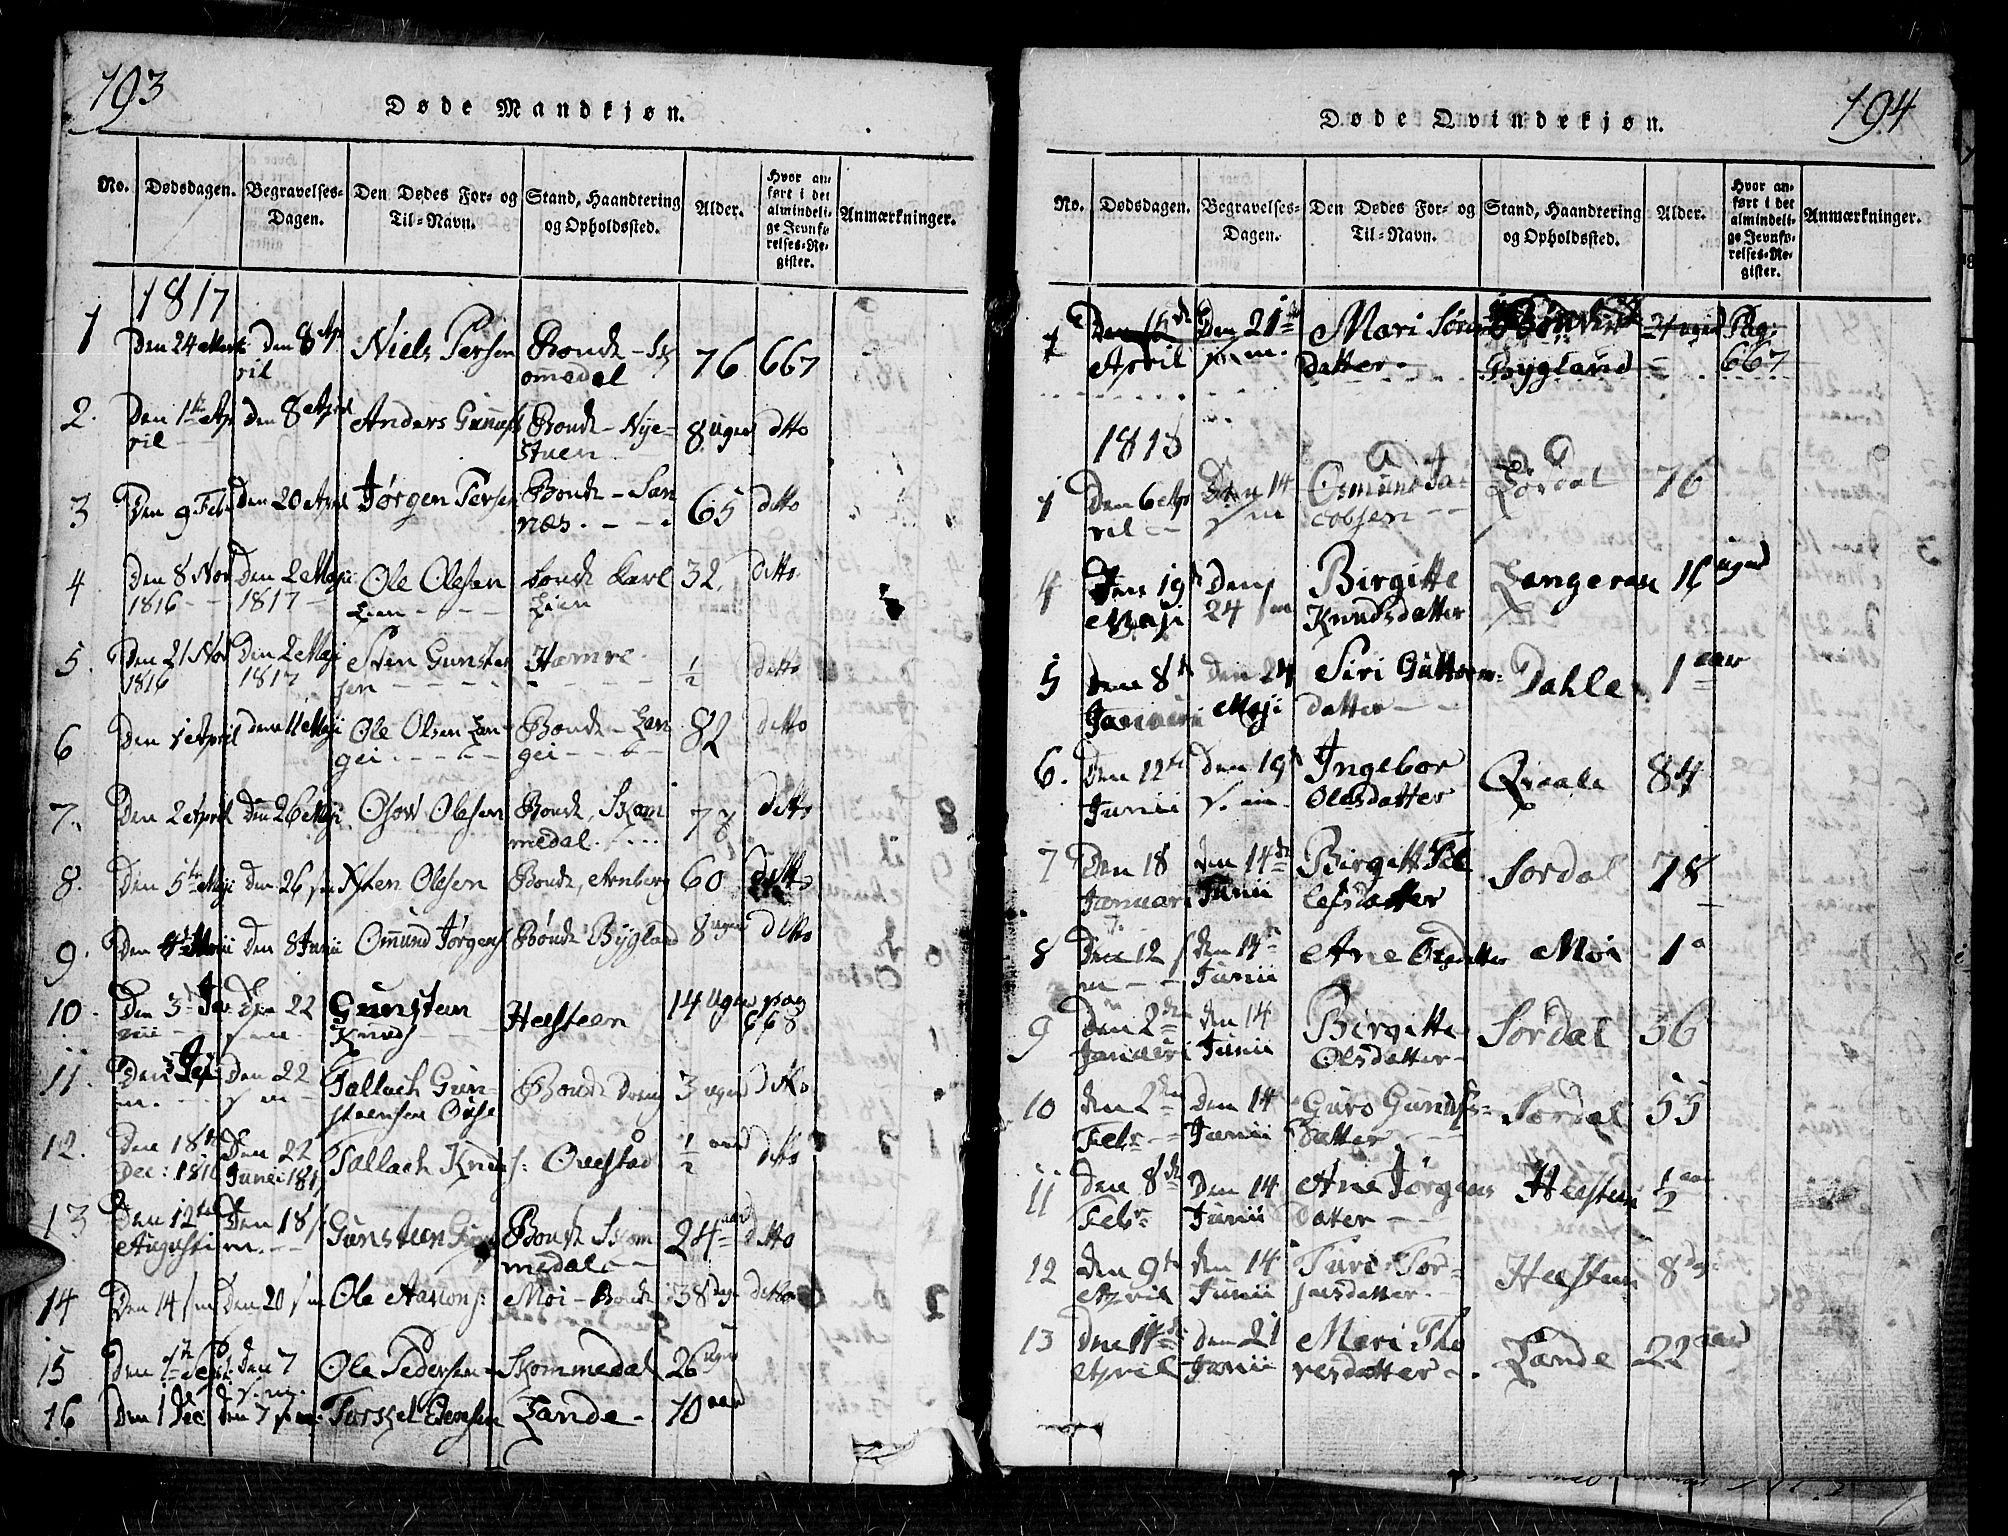 193
Døde Mandkjøn.
No. Dødsdagen. Begravelses-Dagen. Den Dødes For- og Til-Navn. Stand, Haandtering og Opholdssted. Alder. Hvor anført i det almindelige Jevnførelses-Register. Anmærkninger.
1817
1 Den 24 Marti den 8 April Niels Persen Bonde - Skomedal 76 667
2. Den 1te April den 8 April Anders Bonde - Nyestuen 8 Uger ditto
3 Den 9 Feb. den 20 April Jørgen Persen Bonde - Sannæs 65 ditto
4 Den 8 Nov 1816 Den 2 Maji 1817 Ole Olesen Lien Karl Lien 32 ditto
5. Den 21 Nov 1816 Den 2 Maji 1817 Sven Gunstensen Hamre ½ ditto
6 Den 1 April den 11 Maji Ole Olsen Langei Bonde - Langei 82 ditto
7. Den 2 April Den 26 Maji Osow Olesen Bonde, Skommedal 78 ditto
8. Den 5te Maji Den 26 s m Olesen Bonde, Arnberg 60 ditto
9. Den Maii Den 8 Junii Omund Jørgens Bonde Bygland 8 uger ditto
10. Den 3 Junii Den 22 s m Gunsteen Knuds Heesteen 14 Uger pag 668
11. Den m. Den 22 s m Tallach Gunsteensen Ose Bonde Dreng 3 uger ditto
12. Den 18te Dec: 1816 Den 22 Junii 1817 Tallach Knuds: Ovestad ½ aar ditto
13 Den 12te Augusti Den 18 s m. Gunsteen Bonde Skommedal 24 aar ditto
14 Den 14 s m Den 20 s m Ole Aanons: Moi - Bonde 38 ditto
15 Den 1te Sept. Den 7 s. m. Ole Pedersen Skommedal 26 uger
16 Den 1 Dec den 7 s m. Torkel Evensen Lande - 70 aar
194
Døde Qvindekjøn.
No. Dødsdagen. Begravelses-Dagen. Den Dødes For- og Til-Navn. Stand, Haandtering og Opholdssted. Alder. Hvor anført i det almindelige Jevnførelses-Register. Anmærkninger.
1 Den 16de April Den 21de s. m. Mari datter Bygland Pag: 667
1818
1 Den 6 April Den 14 s m Osmund Jacobsen Lørdal 76
4 Den 19 Maji Den 24 s m Birgitte Knudsdatter Langeraa 16 uger
5 den 8de Januari den 24 Maji Siri Guttormdatter Dahle 1 aar
6. Den 12te Junii den 19 s. m. Ingebor Olesdatter Qvaale 84
7 Den 18 Januari den 14de Junii Birgitt Tellefsdatter Sordal 78
8 Den 12 s m den 14de Junii Ane Olsdatter Moi 1 a
9 Den 2den Januari den 14 Junii Birgitte Olsdatter Sordal 56
10 den 2den Febr Den 14 Junii Guro Gunufsdatter Sordal 55
11 den 8de Febr Den 14 Junii Ane Jørgensdatter Heestein ½ aar
12 den 9de April den 14 Junii Turi Torjusdatter Heestein 8 dage
13 den 14de April den 21 Junii Mari Thoresdatter Lande 22 aar